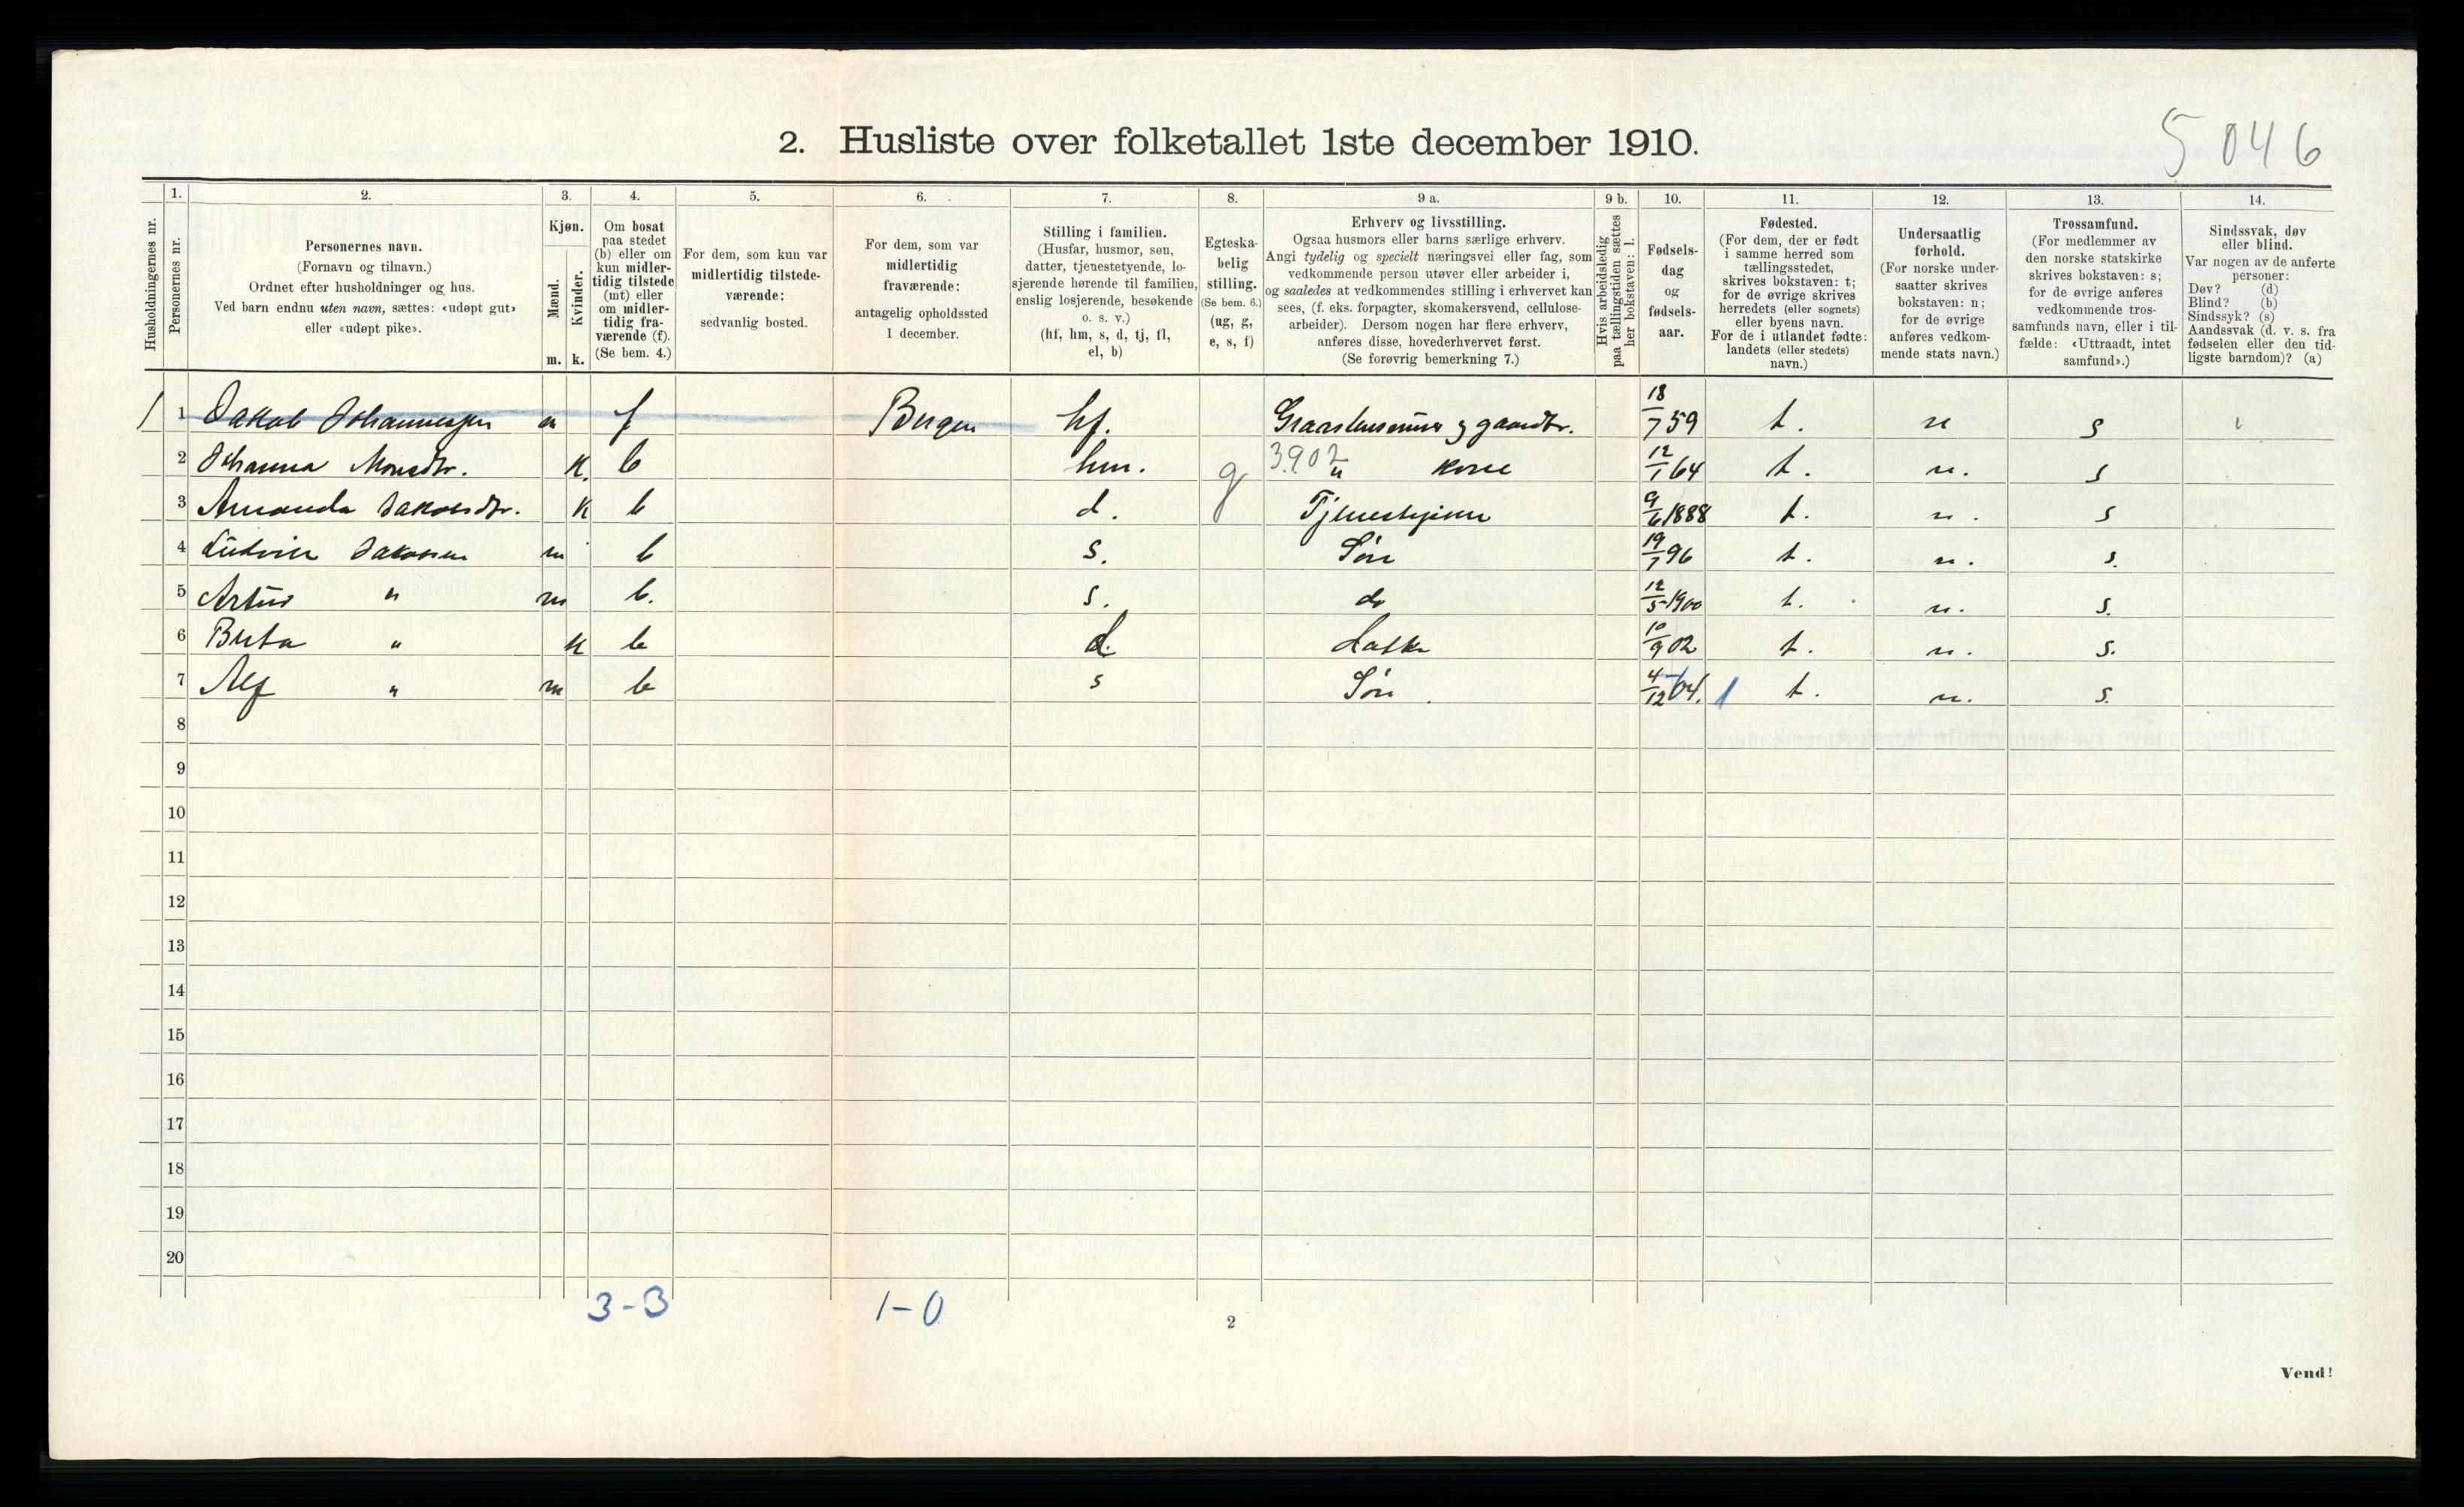 5046
2. Husliste over folketallet 1ste december 1910.
Husholdningernes nr.
1.
Personernes nr.
2.
Personernes navn.
(Fornavn og tilnavn.)
Ordnet efter husholdninger og hus.
Ved barn endnu uten navn, sættes: «udøpt gut»
eller «udøpt pike».
3.
Kjøn.
Mænd.
Kvinder.
m. k.
4.
Om bosat
paa stedet
(b) eller om
kun midler-
tidig tilstede
(mt) eller
om midler-
tidig fra-
værende (f).
(Se bem. 4.)
5.
For dem, som kun var
midlertidig tilstede-
værende:
sedvanlig bosted.
6.
For dem, som var
midlertidig
fraværende:
antagelig opholdssted
1 december.
7.
Stilling i familien.
(Husfar, husmor, søn,
datter, tjenestetyende, lo-
sjerende hørende til familien,
enslig losjerende, besøkende
o. s. v.)
(hf, hm, s, d, tj, fl,
el, b)
8.
Egteska-
belig
stilling.
(Se bem. 6.)
(ug, g,
e, s, f)
9 a.
Erhverv og livsstilling.
Ogsaa husmors eller barns særlige erhverv.
Angi tydelig og specielt næringsvei eller fag, som
vedkommende person utøver eller arbeider i,
og saaledes at vedkommendes stilling i erhvervet kan
sees, (f. eks. forpagter, skomakersvend, cellulose-
arbeider). Dersom nogen har flere erhverv,
anføres disse, hovederhvervet først.
(Se forøvrig bemerkning 7.)
9 b.
Hvis arbeidsledig
paa tællingstiden sættes
her bokstaven: l.
10.
Fødsels-
dag
og
fødsels-
aar.
11.
Fødested.
(For dem, der er født
i samme herred som
tællingsstedet,
skrives bokstaven: t;
for de øvrige skrives
herredets (eller sognets)
eller byens navn.
For de i utlandet fødte:
landets (eller stedets)
navn.)
12.
Undersaatlig
forhold.
(For norske under-
saatter skrives
bokstaven: n;
for de øvrige
anføres vedkom-
mende stats navn.)
13.
Trossamfund.
(For medlemmer av
den norske statskirke
skrives bokstaven: s;
for de øvrige anføres
vedkommende tros-
samfunds navn, eller i til-
fælde: «Uttraadt, intet
samfund».)
14.
Sindssvak, døv
eller blind.
Var nogen av de anførte
personer:
Døv? (d)
Blind? (b)
Sindssyk? (s)
Aandssvak (d. v. s. fra
fødselen eller den tid-
ligste barndom)? (a)
1 1 Jakob Johannessen m f Bergen hf. 18/7 59 t. n s
2 Johanna Monsdtr. k. b hm. g 3902 " kone 12/1 64 t. n. s
3 Amanda Jakobsdtr. k b d. 9/6 1888 t. n. s
4 Ludvik Jakobsen m b s. Søn 19/7 96 t. n. s.
5 Artur " m b. s. do 12/5 1900 t. n. s.
6 Berta " k b d. 10/9 02 t. n. s.
7 Alf " m b s Søn 4/12 04. 1 t. n. s.
8
9
10
11
12
13
14
15
16
17
18
19
20
3-3 1-0
2
Vend!